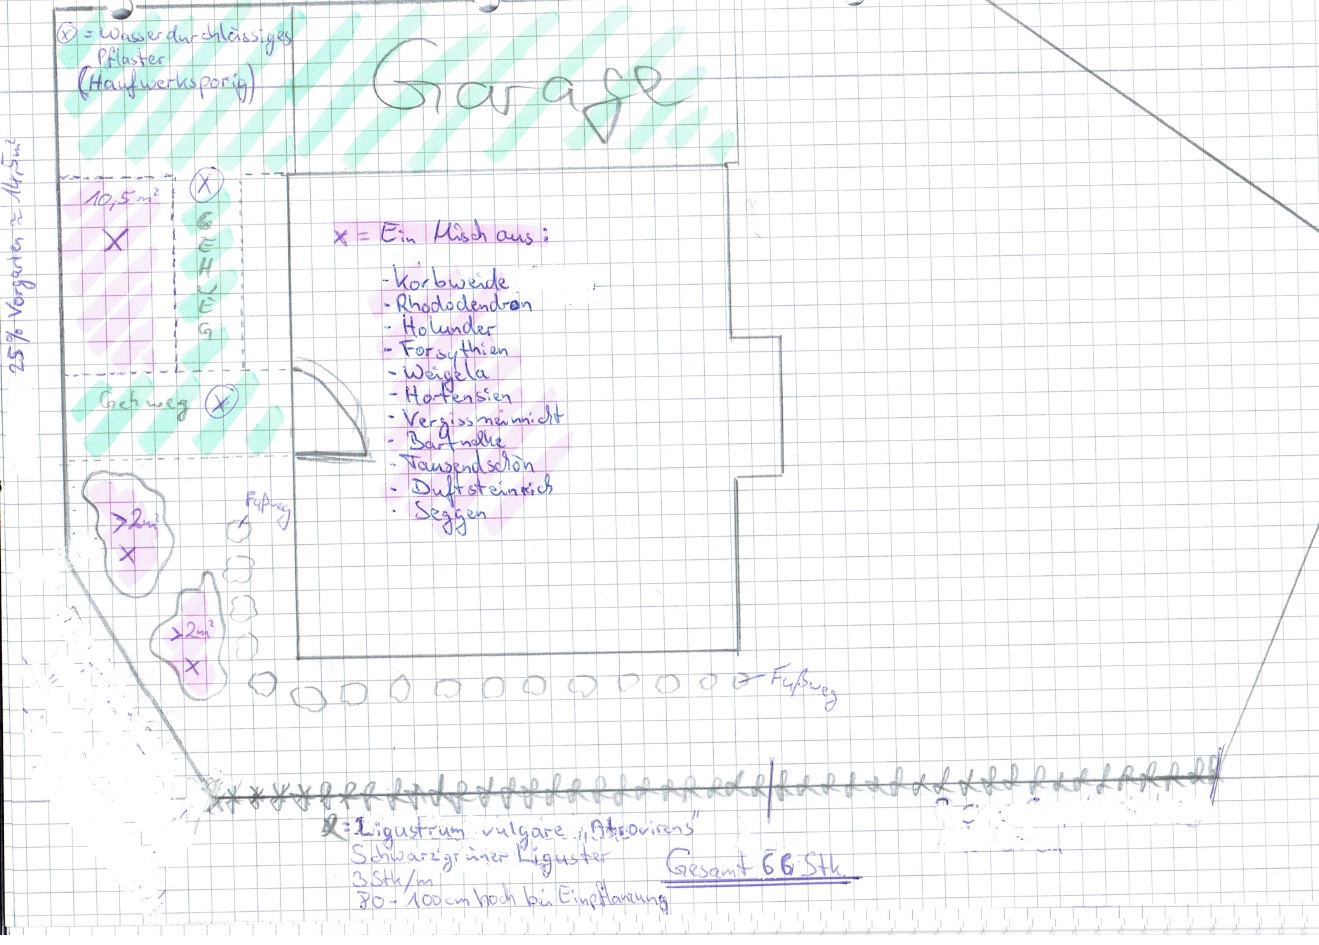 ⓧ = Wasserdurchlässiges
Pflaster
(Haufwerksporig)
Garage
25% Vorgarten ≈ 14,5m²
10,5 m²
X
ⓧ
GEHWEG
x = Ein Misch aus:
- Korbweide
- Rhododendron
- Holunder
- Forsythien
- Weigela
- Hortensien
- Vergissmeinnicht
- Bartnelke
- Tausendschön
- Duftsteinrich
- Seggen
Gehweg ⓧ
>2m²
x
Fußweg
>2m²
x
Fußweg
= Ligustrum vulgare „Atrovirens"
Schwarzgrüner Liguster
3Stk/m
80-100cm hoch bei Einpflanzung
Gesamt 66 Stk